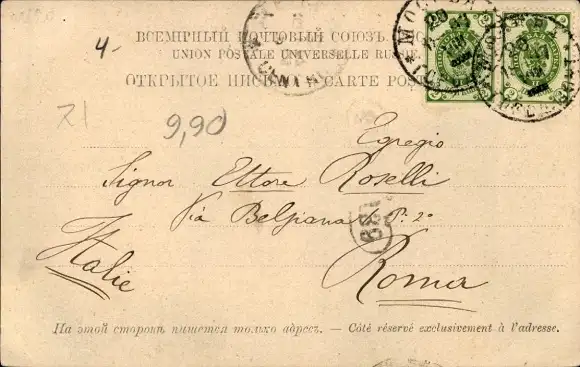 4-
ВСЕМІРНЫЙ ПОЧТОВЫЙ СОЮЗЪ.
UNION POSTALE UNIVERSELLE
ОТКРЫТОЕ ПИСЬМО
CARTE
МОСКВА
21
9,90
Egregio
Signor Ettore Roselli
Via Belsiana P. 2º
Italie
Roma
На этой сторонѣ пишется только адресъ. — Côté réservé exclusivement à l'adresse.